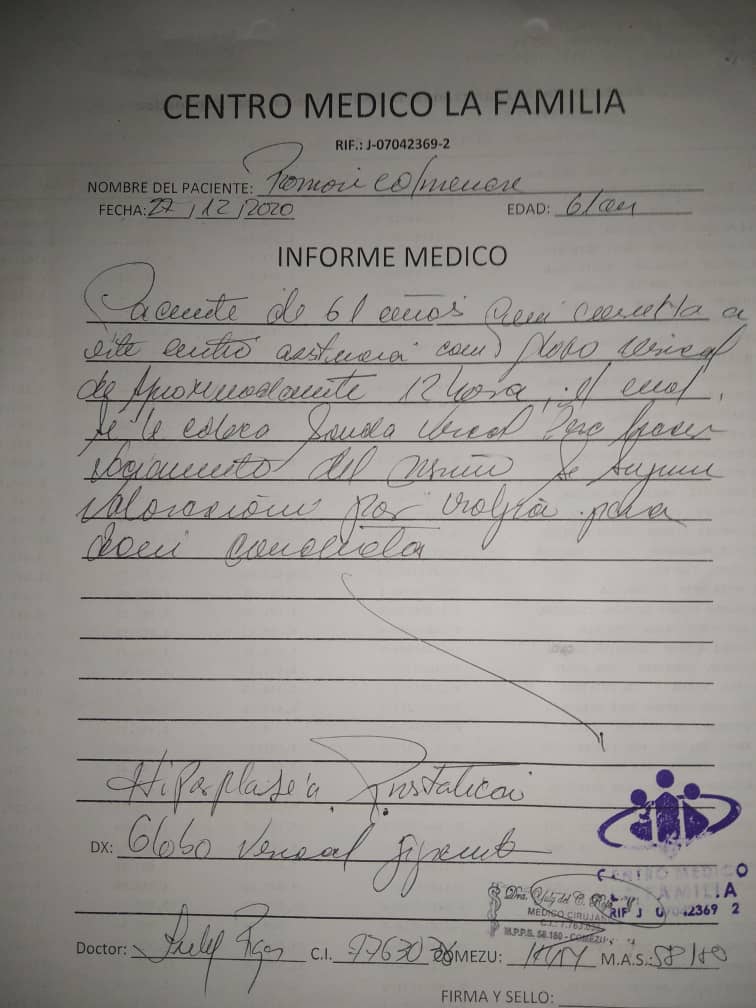 CENTRO MEDICO LA FAMILIA
RIF.: J-07042369-2
NOMBRE DEL PACIENTE: Ramon Colmenare
FECHA: 27/12/2020 EDAD: 61 an
INFORME MEDICO
Paciente de 61 años a
este centro con globo vesical
de aproximadamente 12 hora, el cual
se le coloca Sonda Vesical para hacer
vaciamiento del mismo se sugiere
valoración por urología para
conducta
Hiperplasia Prostatica
DX: Globo Vesical gigante
CENTRO MEDICO
LA FAMILIA
RIF J 07042369 2
Dra. del C.
MEDICO CIRUJANO
M.P.P.S. 58.180 - COMEZU
Doctor: C.I. COMEZU: M.A.S.: 58180
FIRMA Y SELLO: